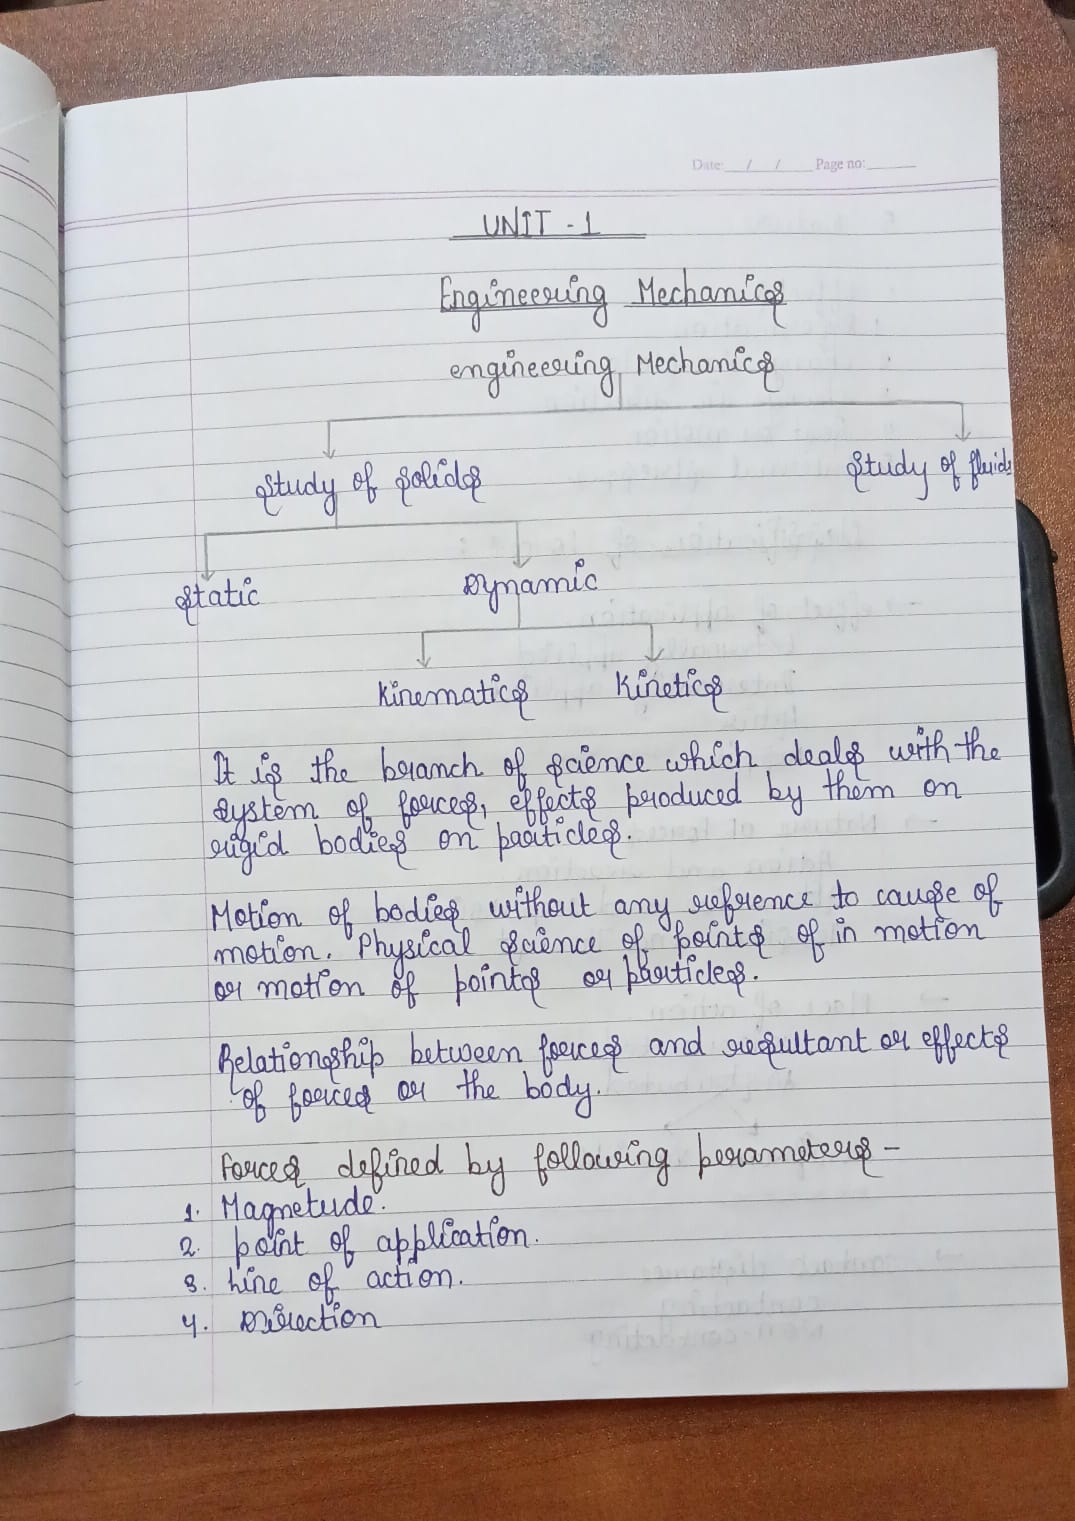 Date: / / Page no:
UNIT - 1
Engineering Mechanics
engineering Mechanics
Study of solids
Study of fluids
Static
Dynamic
Kinematics Kinetics
It is the branch of science which deals with the
system of forces, effects produced by them on
rigid bodies on particles.
Motion of bodies without any reference to cause of
motion. Physical science of points of in motion
or motion of points or particles.
Relationship between forces and resultant or effects
of forces or the body.
Forces defined by following perameters -
1. Magnetude.
2. point of application.
3. Line of action.
4. Direction